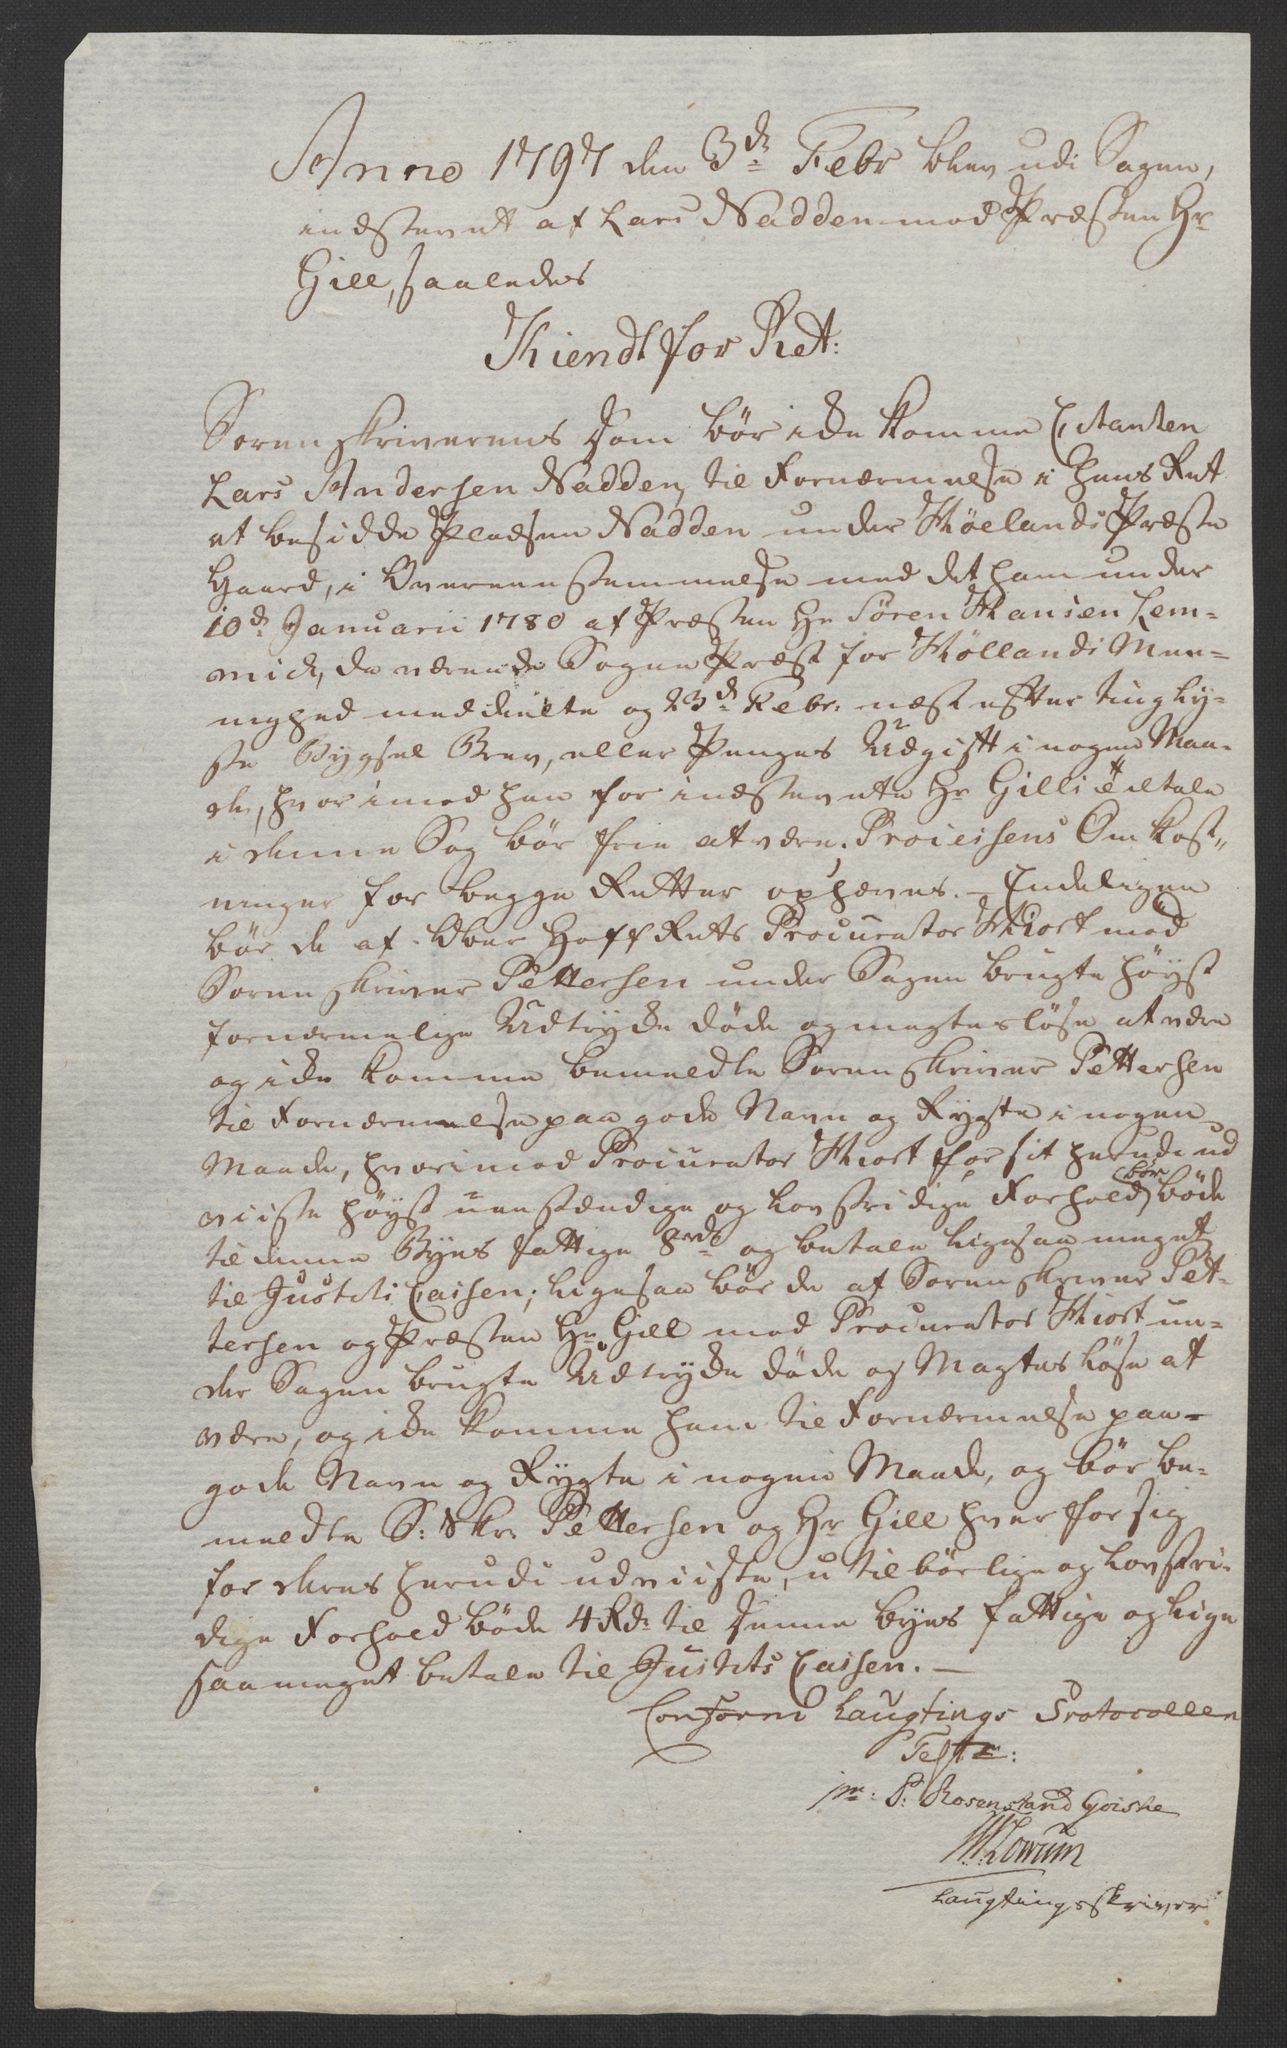 Anno 1797 den 3de Febr blev udi Sagen,
indstevnt af Lars Nadden mod Præsten Hr
Gill, saaledes
Kiendt for Ret:
Sorenskriverens Dom bør icke komme Citanten
Lars Andersen Nadden, til Fornærmelse i hans Ret
at besidde Pladsen Nadden under Høelands Præste
Gaard, i Overeenstemmelse med det ham under
10de Januarii 1780 af Præsten Hr Søren Hansen Lem-
mich, da værende Sogne Præst for Høllands Mee-
nighed meddeelte og 23de Febr: næst efter tingly-
ste Bygsel Brev, eller Penges Udgift i nogen Maa-
de, hvorimod han for indstevnte Hr Gills Tiltale
i denne Sag bør frie at være; Processens Omkost-
ninger for begge Retter ophæves. – Endeligen
bør de af Over Hoff Rets Procurator Hiort mod
Sorenskriver Pettersen under Sagen brugte høyst
fornærmelige Udtrycke døde og magtesløse at være
og icke komme bemeldte Sorenskriver Pettersen
til Fornærmelse paa gode Navn og Rygte i nogen
Maade, hvorimod Procurator Hiort for sit herudi ud
viiste høyst uanstændige og lovstridige Forhold bør bøde
til denne Byes fattige 8rd og betale ligesaa meget
til Justits Cassen; ligesaa bør de af Sorenskriver Pet-
tersen og Præsten Hr Gill mod Procurator Hiort un-
der Sagen brugte Udtrycke døde og Magtesløse at
være, og icke komme ham til Fornærmelse paa
gode Navn og Rygte i nogen Maade, og bør be-
meldte S: Skr. Pettersen og Hr Gill hver for sig
for deres herudi udviiste, utilbørlige og lovstri-
dige Forhold bøde 4 Rd: til denne byes fattige og lige
saa meget betale til Justits Cassen. –
Conform Laugtings Protocollen
Test:
P: Rosenstand Goiske
Lowum
Laugtingsskriver